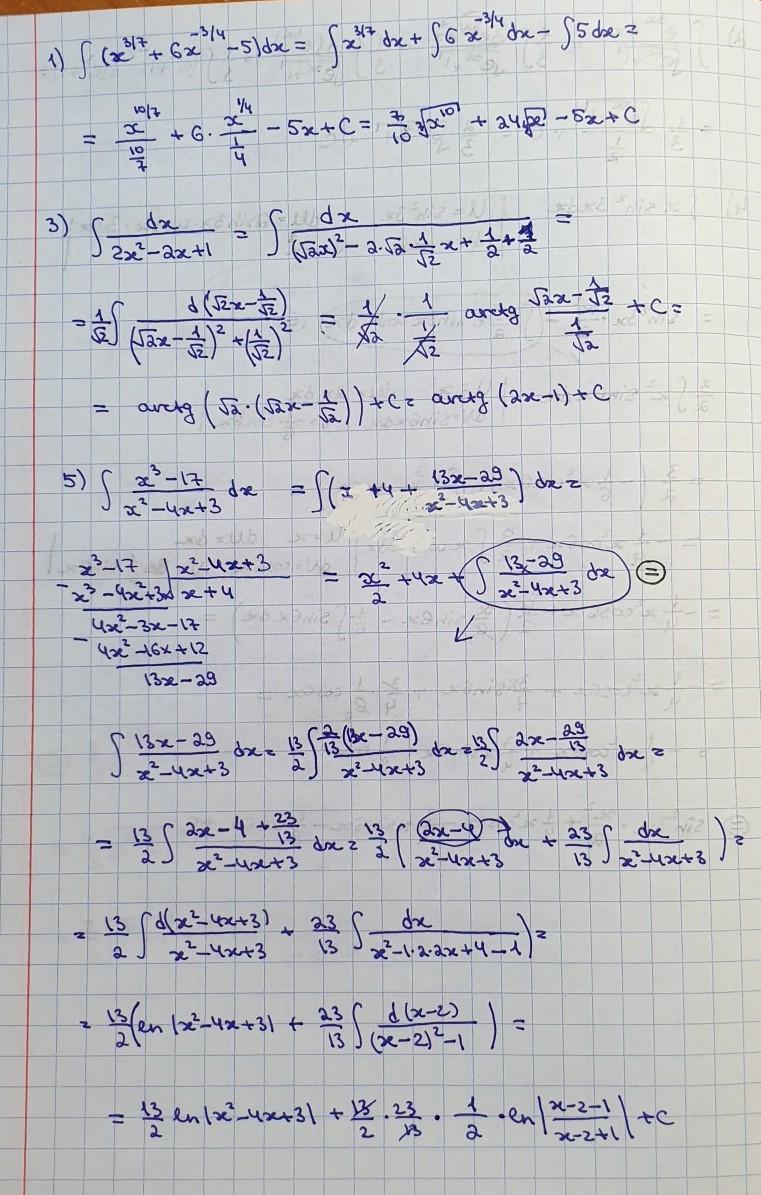 1) ∫ (x^{3/7} + 6x^{-3/4} - 5) dx = ∫ x^{3/7} dx + ∫ 6 x^{-3/4} dx - ∫ 5 dx =
= \frac{x^{10/7}}{\frac{10}{7}} + 6 · \frac{x^{1/4}}{\frac{1}{4}} - 5x + C = \frac{7}{10} \sqrt[7]{x^{10}} + 24 \sqrt[4]{x} - 5x + C
3) ∫ \frac{dx}{2x^2 - 2x + 1} = ∫ \frac{dx}{(√2x)^2 - 2·√2·\frac{1}{√2} x + \frac{1}{2} + \frac{1}{2}} =
= \frac{1}{√2} ∫ \frac{d(√2x - \frac{1}{√2})}{(√2x - \frac{1}{√2})^2 + (\frac{1}{√2})^2} = \frac{1}{√2} · \frac{1}{\frac{1}{√2}} arctg \frac{√2x - \frac{1}{√2}}{\frac{1}{√2}} + C =
= arctg (√2·(√2x - \frac{1}{√2})) + C = arctg (2x-1) + C
5) ∫ \frac{x^3 - 17}{x^2 - 4x + 3} dx = ∫ (x + 4 + \frac{13x - 29}{x^2 - 4x + 3}) dx =
x^3 - 17 | x^2 - 4x + 3 = \frac{x^2}{2} + 4x + ∫ \frac{13x - 29}{x^2 - 4x + 3} dx =
- x^3 - 4x^2 + 3x | x + 4
4x^2 - 3x - 17
- 4x^2 - 16x + 12
13x - 29
∫ \frac{13x - 29}{x^2 - 4x + 3} dx = \frac{13}{2} ∫ \frac{\frac{2}{13}(13x - 29)}{x^2 - 4x + 3} dx = \frac{13}{2} ∫ \frac{2x - \frac{29}{13}}{x^2 - 4x + 3} dx =
= \frac{13}{2} ∫ \frac{2x - 4 + \frac{23}{13}}{x^2 - 4x + 3} dx = \frac{13}{2} ( \frac{2x - 4}{x^2 - 4x + 3} dx + \frac{23}{13} ∫ \frac{dx}{x^2 - 4x + 3} ) =
= \frac{13}{2} ∫ \frac{d(x^2 - 4x + 3)}{x^2 - 4x + 3} + \frac{23}{13} ∫ \frac{dx}{x^2 - 1·2·2x + 4 - 1} ) =
= \frac{13}{2} (ln |x^2 - 4x + 3| + \frac{23}{13} ∫ \frac{d(x-2)}{(x-2)^2 - 1} ) =
= \frac{13}{2} ln |x^2 - 4x + 3| + \frac{13}{2} · \frac{23}{13} · \frac{1}{2} · ln |\frac{x-2-1}{x-2+1}| + C